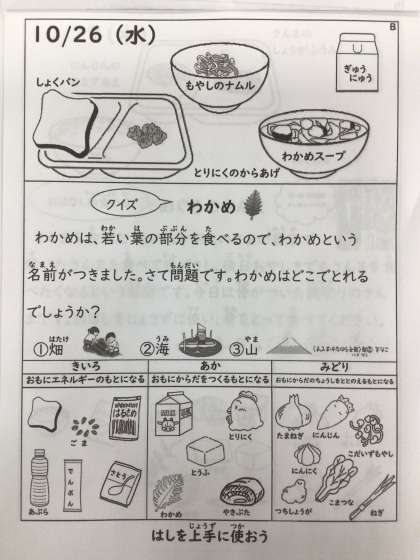 10/26（水）
B
ぎゅう
にゅう
しょくパン
もやしのナムル
とりにくのからあげ
わかめスープ
クイズ
わかめ
わかめは、若い葉の部分を食べるので、わかめという
名前がつきました。さて問題です。わかめはどこでとれる
でしょうか？
①畑 ②海 ③山
きいろ
おもにエネルギーのもとになる
ごま
はるさめ
あぶら
でんぷん
さとう
あか
おもにからだをつくるもとになる
とりにく
とうふ
わかめ
やきぶた
みどり
おもにからだのちょうしをととのえるもとになる
たまねぎ
にんじん
こだいずもやし
にんにく
つちしょうが
こまつな
ねぎ
はしを上手に使おう